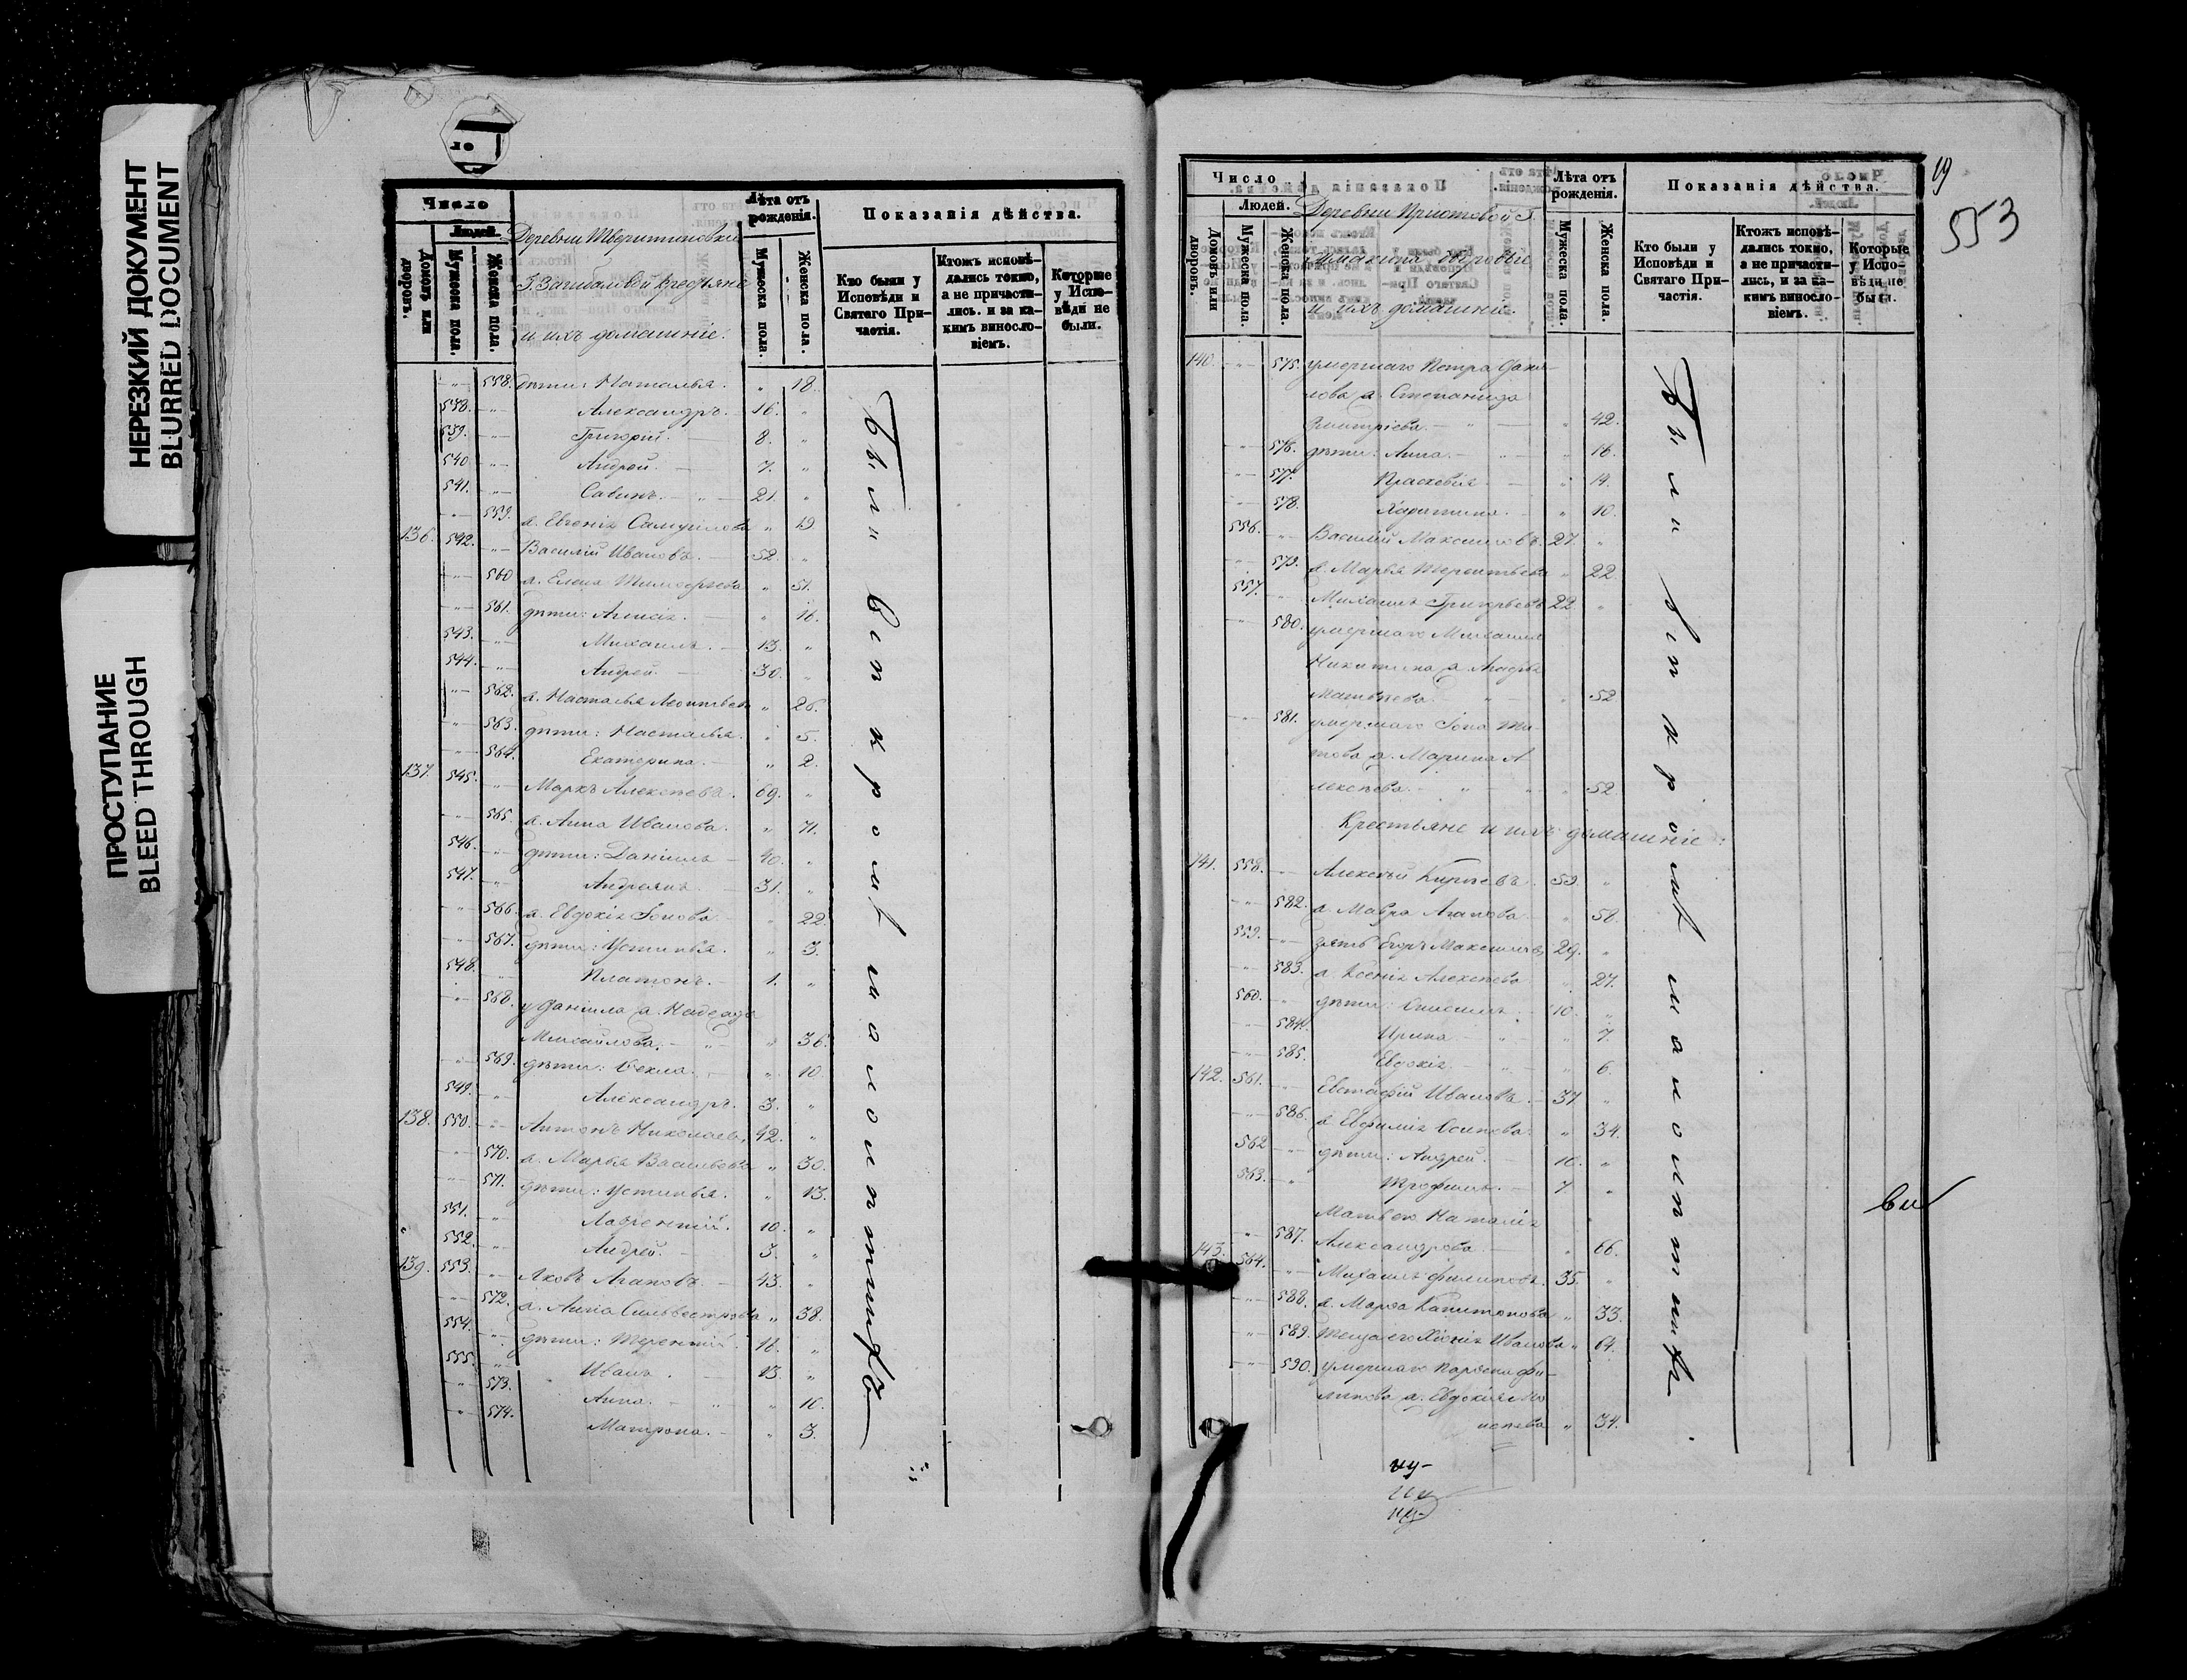 НЕРЕЗКИЙ ДОКУМЕНТ
BLURRED DOCUMENT
ПРОСТУПАНИЕ
BLEED THROUGH
Число
Людей.
Домовъ или дворовъ.
Мужеска пола.
Женска пола.
Деревни Тверитиновки
и ихъ домашніе:
Лѣта отъ рожденія.
Мужеска пола.
Женска пола.
Показанія дѣйства.
Кто были у Исповѣди и Святаго Причастія.
Ктожъ исповѣдались токмо, а не причастились, и за какимъ винословіемъ.
Которые у Исповѣди не были.
558. дѣти: Наталья. 18.
538. Александръ. 16.
539. Григорій. 8.
540. Андрей. 7.
541. Савинъ. 21.
559. ж. Евгенія Самуилова 19
136. 542. Василій Ивановъ. 52.
560 ж. Елена Тимофѣева 51.
561. дѣти: 16.
543. Михаилъ. 13.
544. Андрей. 30.
562. ж. Наталья Леонтьева 26.
563. дѣти: Наталья. 5.
564. Екатерина. 2.
137. 545. Маркъ Алексѣевъ. 69.
565. ж. Анна Иванова. 71.
546. дѣти: Даніилъ 40.
547. Андреянъ 31.
566. ж. Евдокія Іонова 22.
567. дѣти: Устинья. 3.
548. Платонъ. 1.
568. у Даніила ж. Надежда
Михайлова. 36.
569. дѣти: Ѳекла. 10.
549. Александръ. 3.
138. 550. Антонъ Николаевъ 42.
570. ж. Марья Васильева 30.
571. дѣти: Устинья. 13.
551. Лаврентій. 10.
552. Андрей. 3.
139. 553. Яковъ Агаповъ. 43.
572. ж. Анна Сильвестрова 38.
554. дѣти: Терентій. 16.
555. Иванъ. 13.
573. Анна. 10.
574. Матрона. 3.
Были всѣ кромѣ малолѣтнихъ
19
553
Число
Людей.
Домовъ или дворовъ.
Мужеска пола.
Женска пола.
и ихъ домашніе.
Лѣта отъ рожденія.
Мужеска пола.
Женска пола.
Показанія дѣйства.
Кто были у Исповѣди и Святаго Причастія.
Ктожъ исповѣдались токмо, а не причастились, и за какимъ винословіемъ.
Которые у Исповѣди не были.
140. 575. умершаго Петра Дани-
лова ж. Степанида
Дмитріева 42.
576. дѣти: Анна. 16.
577. Прасковія 14.
578. Харитина. 10.
556. Василій Максимовъ. 27.
579. ж. Марья Терентьева 22.
557. Михаилъ Григорьевъ 22.
580. умершаго Михаила
Никитина ж.
Матвѣева. 52.
581. умершаго Іона Ти-
това ж. Марина А-
лексѣева. 52.
Крестьяне и ихъ домашніе:
141. 558. Алексѣй Кирѣевъ. 59.
582. ж. Мавра Агапова. 58.
559. зять Егоръ Максимовъ 29.
583. ж. Ксенія Алексѣева 27.
560. дѣти: 10.
584. Ирина 7.
585. Евдокія. 6.
142. 561. Евстафій Ивановъ. 37.
586. ж. Евфимія Осипова. 34.
562 дѣти: Андрей. 10.
563. Трофимъ. 7
Наталія
587. Александрова. 66.
143. 564. Михаилъ Филиповъ. 35.
588. ж. Марѳа Капитонова 33.
589. теща его Хіонія Иванова 64.
590. умершаго Парѳена Фи-
липова ж. Евдокія Мо-
исеева 34.
Были всѣ кромѣ малолѣтнихъ.